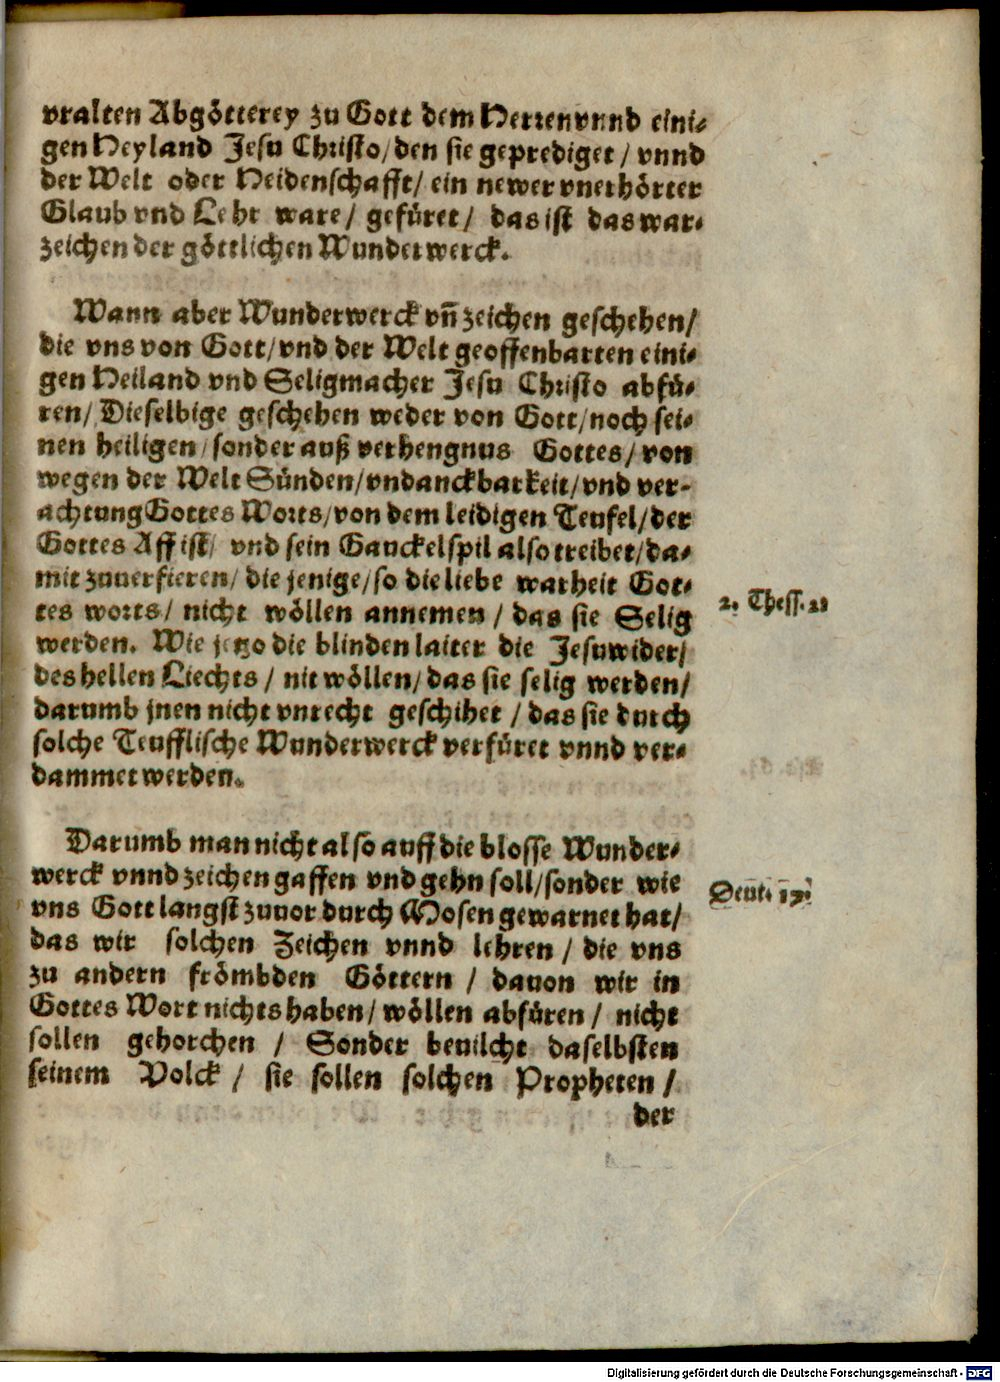 vralten Abgötterey zu Gott dem Herren vnnd eini-
gen Heyland Jesu Christo/ den sie geprediget / vnnd
der Welt oder Heidenschafft/ ein newer vnerhörter
Glaub vnd Lehr ware/ gefüret/ das ist das war-
zeichen der göttlichen Wunderwerck.
Wann aber Wunderwerck vñ zeichen geschehen/
die vns von Gott/ vnd der Welt geoffenbarten eini-
gen Heiland vnd Seligmacher Jesu Christo abfü-
ren/ Dieselbige geschehen weder von Gott/ noch sei-
nen heiligen/ sonder auß verhengnus Gottes/ von
wegen der Welt Sünden/ vndanckbarkeit/ vnd ver-
achtung Gottes Worts/ von dem leidigen Teufel/ der
Gottes Aff ist/ vnd sein Gauckelspil also treibet/ da-
mit zuuerfieren/ die jenige/ so die liebe warheit Got-
tes worts/ nicht wöllen annemen / das sie Selig
werden. Wie jetzo die blinden laiter die Jesuwider/
des hellen Liechts / nit wöllen/ das sie selig werden/
darumb jnen nicht vnrecht geschihet / das sie durch
solche Teufflische Wunderwerck verfüret vnnd ver-
dammet werden.
2. Thess. 2
Darumb man nicht also auff die blosse Wunder-
werck vnnd zeichen gaffen vnd gehn soll/ sonder wie
vns Gott langst zuuor durch Mosen gewarnet hat/
das wir solchen Zeichen vnnd lehren / die vns
zu andern frömbden Göttern / dauon wir in
Gottes Wort nichts haben/ wöllen abfüren / nicht
sollen gehorchen / Sonder beuilcht daselbsten
seinem Volck / sie sollen solchen Propheten /
der
Deut. 13.
Digitalisierung gefördert durch die Deutsche Forschungsgemeinschaft - DFG